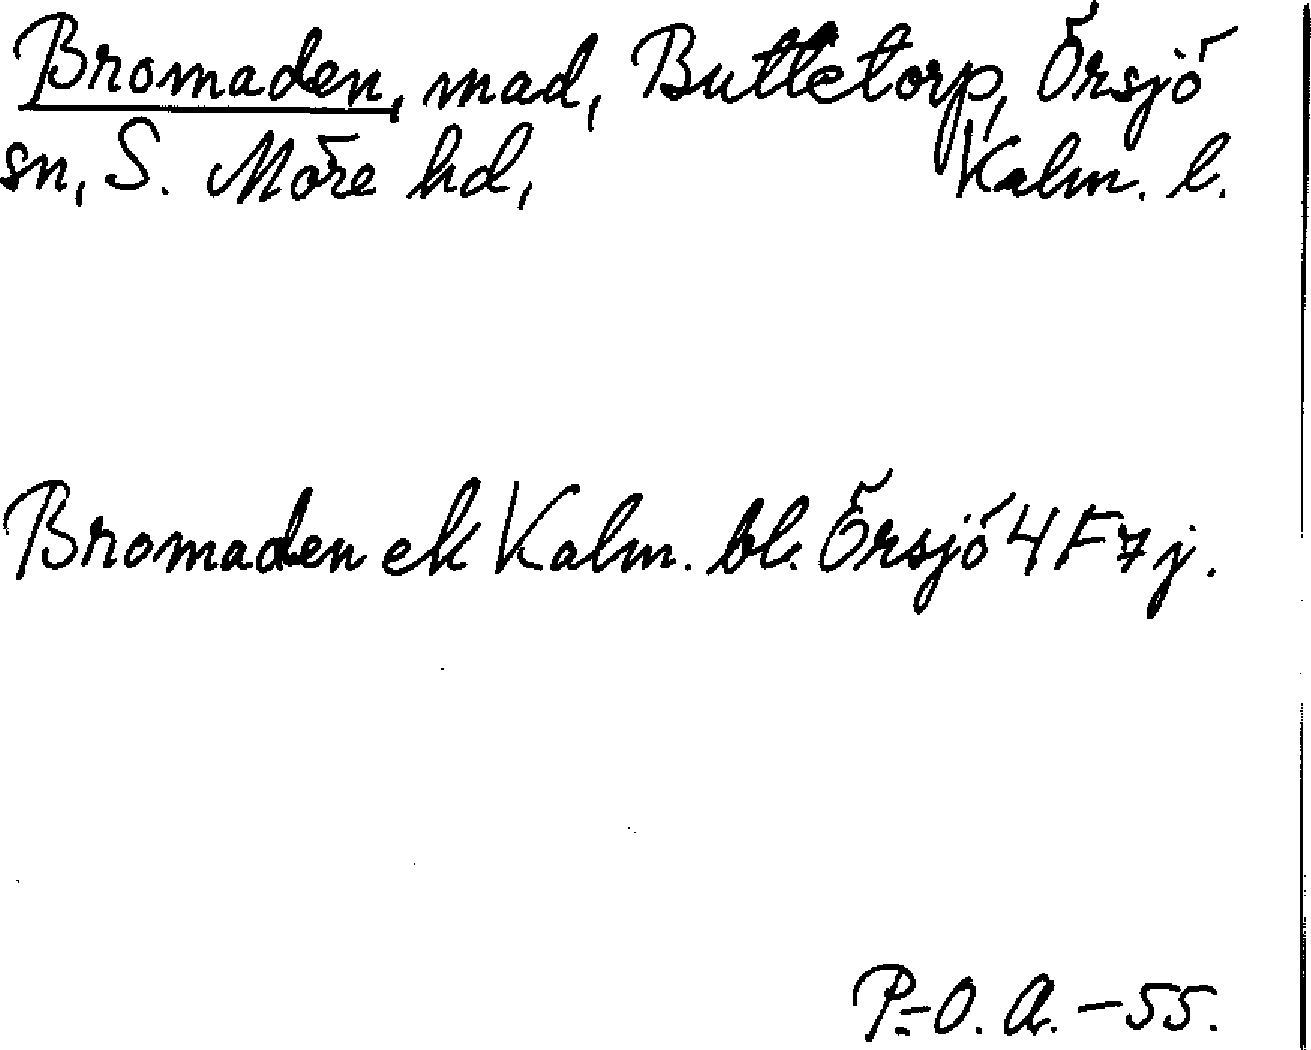 Bromaden, mad, Buttetorp, Örsjö
sn, S. Möre hd, Kalm. l.
Bromaden ek Kalm. bl. Örsjö 4F7j.
P.-O. A. - 55.